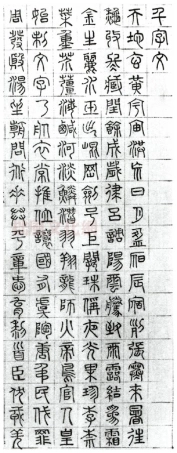 千字文
天地玄黃宇宙洪荒日月盈昃辰宿列張寒來暑往
秋收冬藏閏餘成歲律呂調陽雲騰致雨露結為霜
金生麗水玉出崑岡劍號巨闕珠稱夜光果珍李柰
菜重芥薑海鹹河淡鱗潛羽翔龍師火帝鳥官人皇
始制文字乃服衣裳推位讓國有虞陶唐弔民伐罪
周發殷湯坐朝問道垂拱平章愛育黎首臣伏戎羌